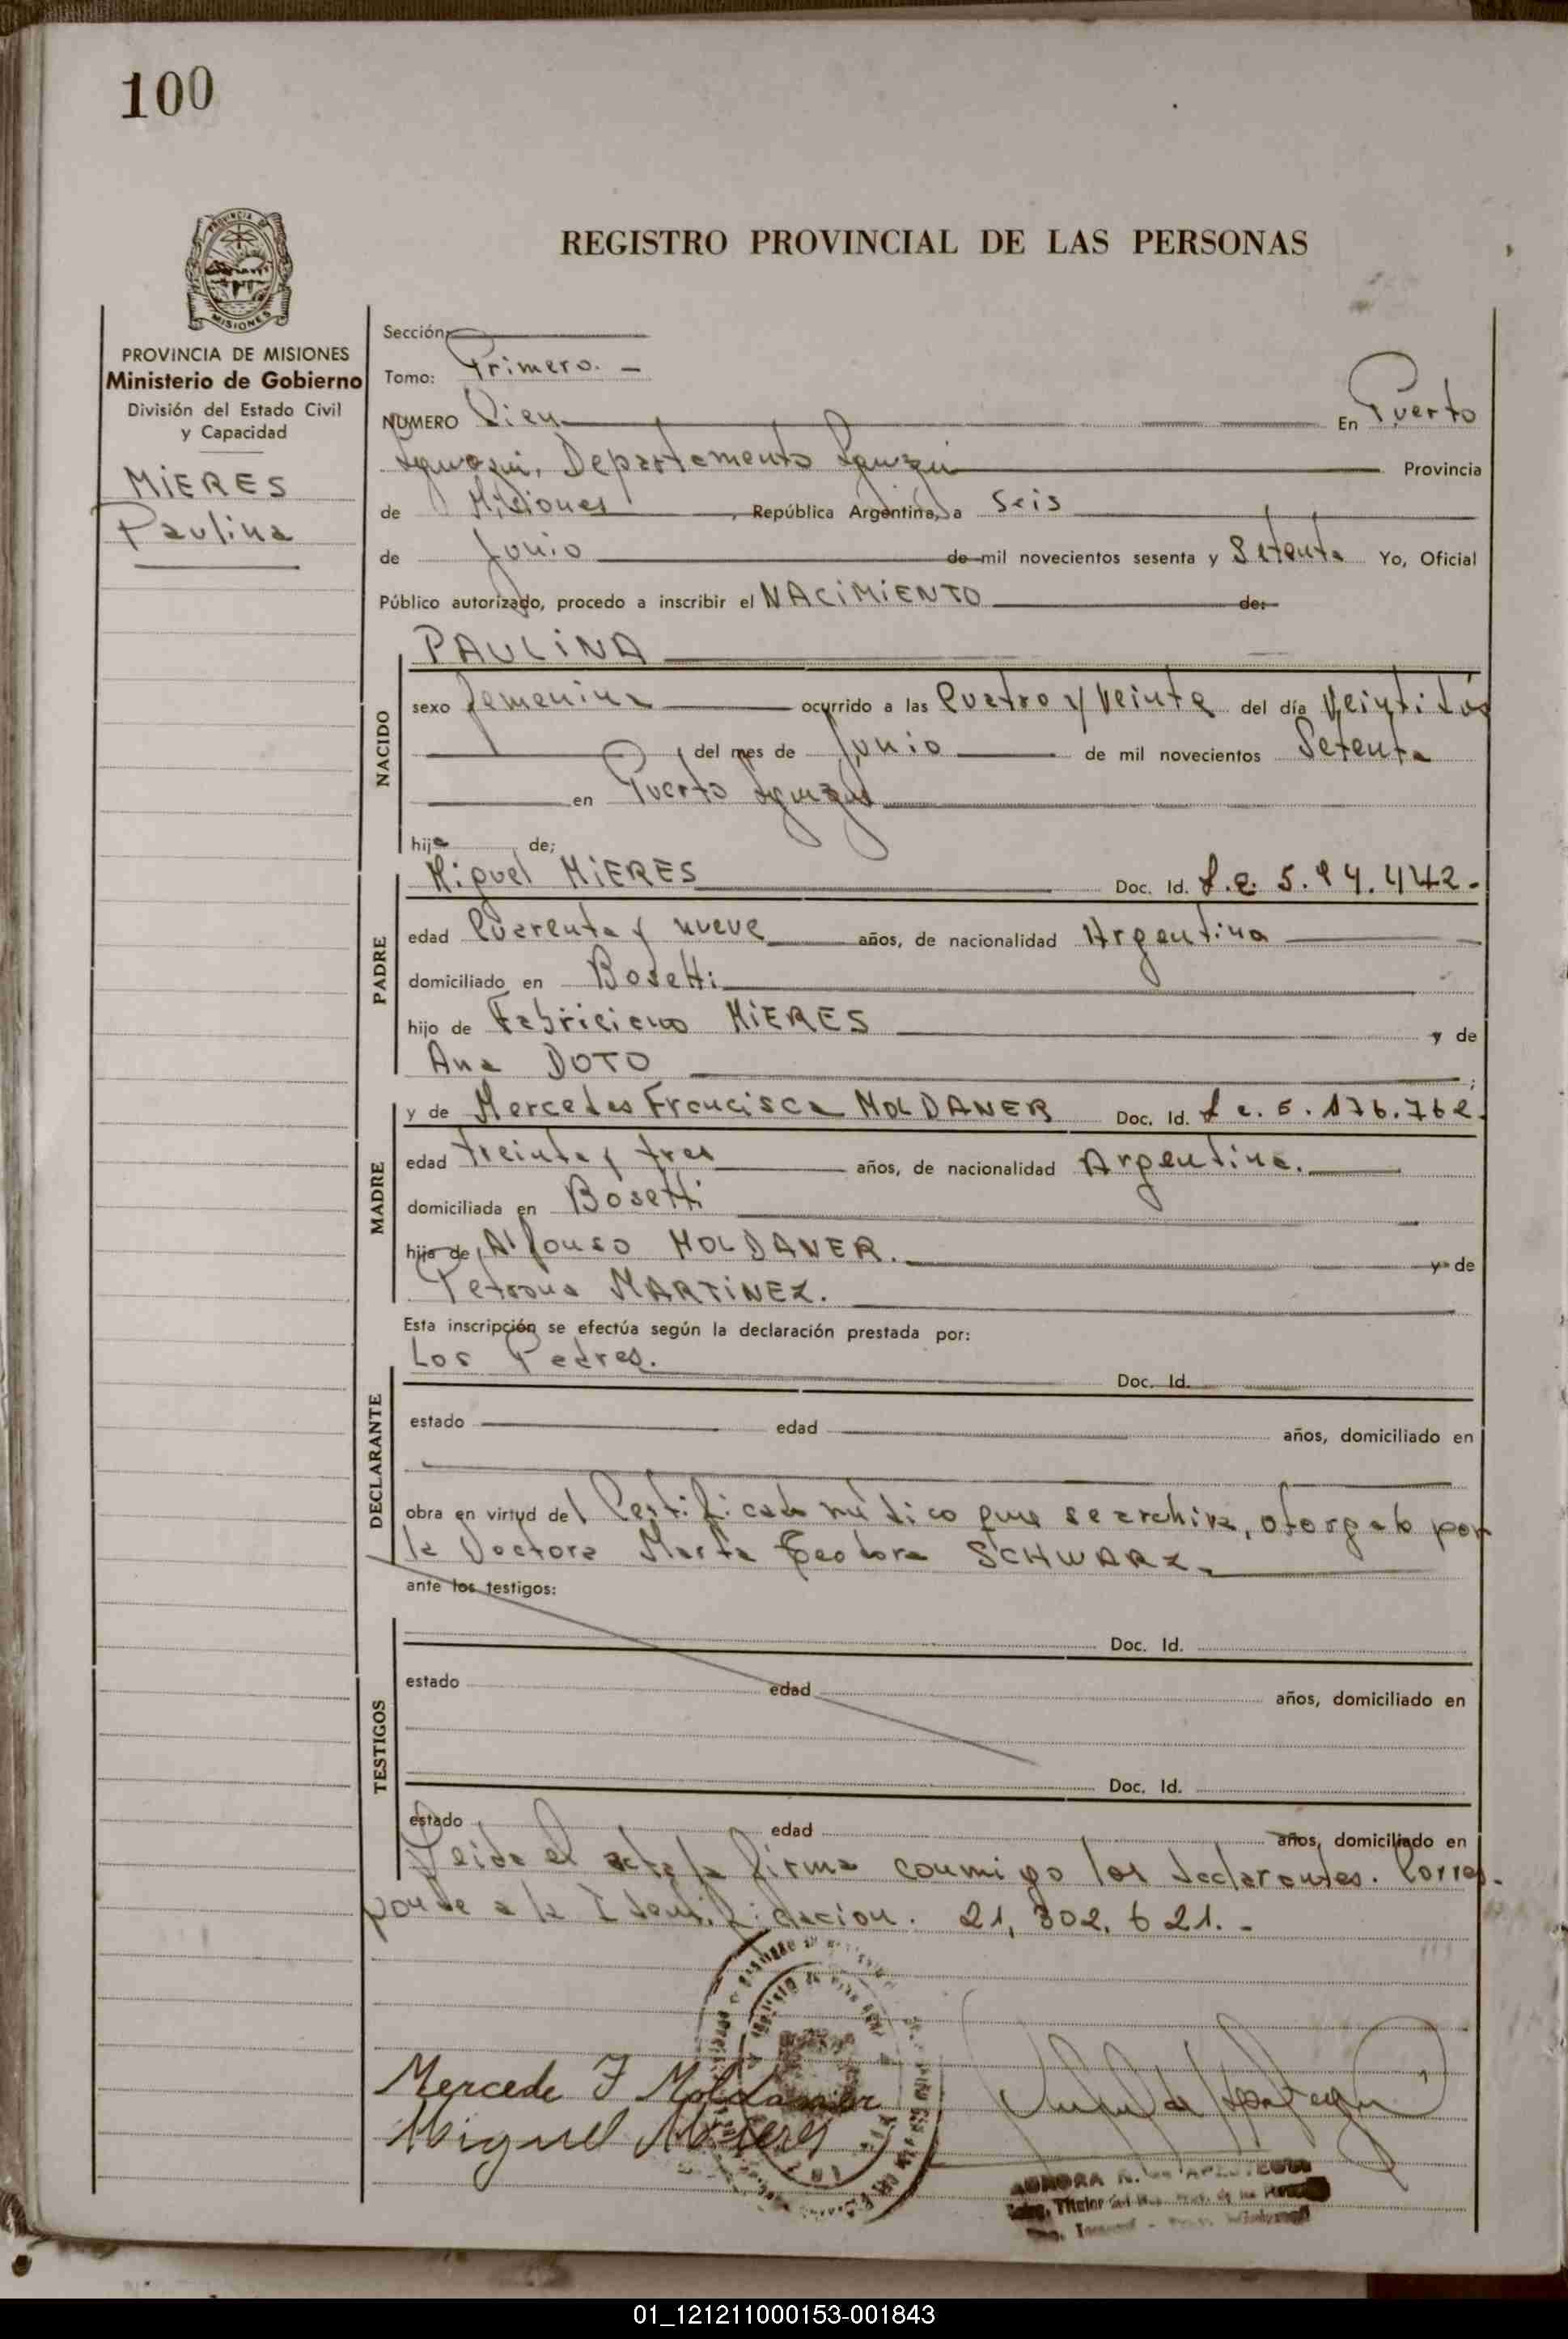 100
PROVINCIA DE
MISIONES
REGISTRO PROVINCIAL DE LAS PERSONAS
PROVINCIA DE MISIONES
Ministerio de Gobierno
División del Estado Civil
y Capacidad
MiERES
Paulina
Sección:
Tomo: Primero. -
NUMERO Cien En Puerto
Iguazú, Departamento Iguazú Provincia
de Misiones, República Argentina, a Seis
de Junio de mil novecientos sesenta y Setenta Yo, Oficial
Público autorizado, procedo a inscribir el NACiMiENTO de:
PAULiNA
NACIDO
sexo femenino ocurrido a las Cuatro y Veinte del día Veintidós
del mes de Junio de mil novecientos Setenta
en Puerto Iguazú
hija de;
PADRE
Miguel MiERES Doc. Id. L.e. 442.-
edad Cuarenta y nueve años, de nacionalidad Argentina
domiciliado en Bosetti
hijo de Fabriciano MiERES y de
Ana DOTO ;
MADRE
y de Mercedes Francisca MOLDANER Doc. Id. L c. 6.176.762.
edad treinta y tres años, de nacionalidad Argentina.
domiciliada en Bosetti
hija de Alfonso MOLDANER. y de
Petrona MARTiNEZ.
Esta inscripción se efectúa según la declaración prestada por:
DECLARANTE
Los Padres. Doc. Id.
estado edad años, domiciliado en
obra en virtud del Certificado médico que se archiva, otorgado por
la Doctora Marta Teodora SCHWARZ.
ante los testigos:
TESTIGOS
Doc. Id.
estado edad años, domiciliado en
Doc. Id.
estado edad años, domiciliado en
Leida el acta la firma conmigo los declarantes. Corres-
ponde a la Identificacion. 21.302.621.-
Mercede F Moldaner
Miguel Mieres
AURORA N.
01_121211000153-001843